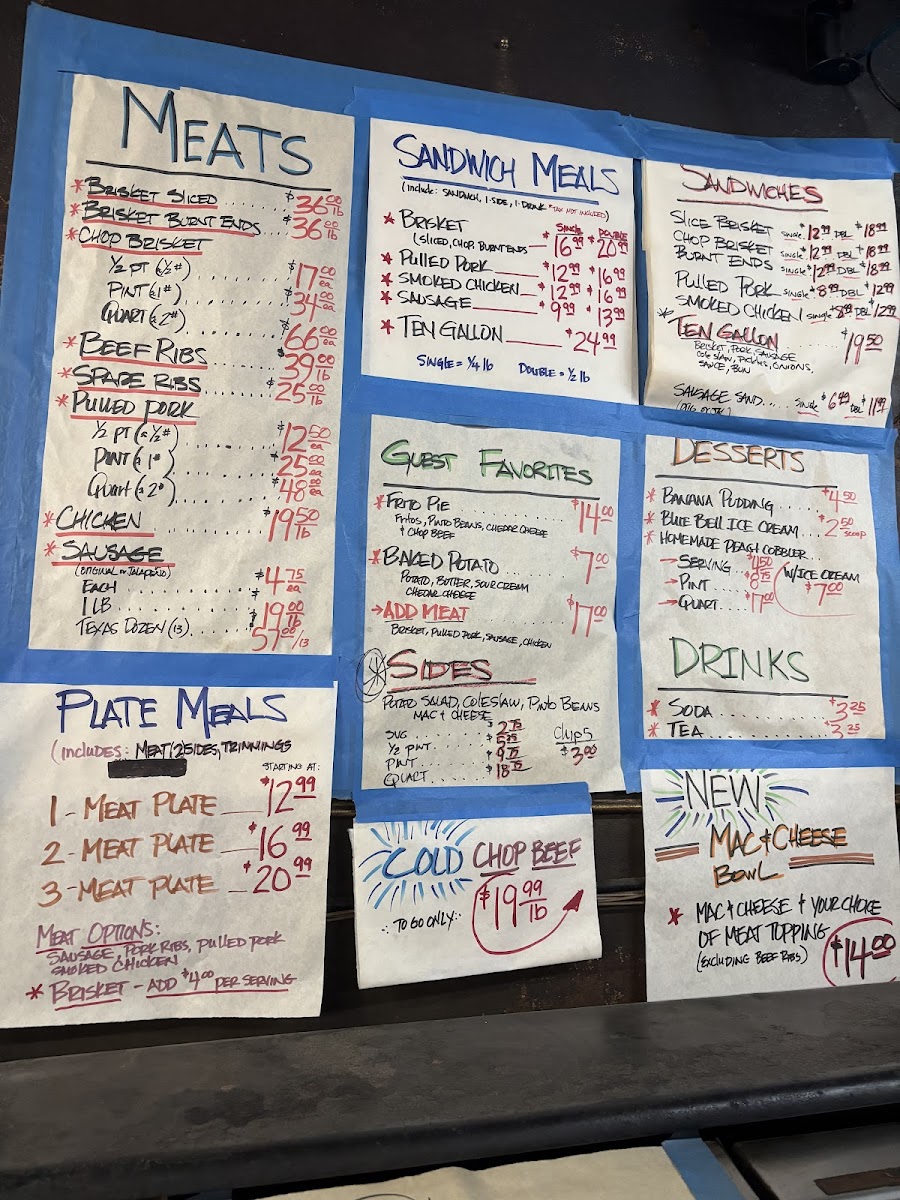 MEATS
* BRISKET SLICED ........ $36.00 lb
* BRISKET BURNT ENDS $36.00 lb
* CHOP BRISKET
1/2 PT (≈1/2#) ........ $17.00 ea
PINT (≈1#) ........ $34.00 ea
QUART (≈2#) ........ $66.00 ea
* BEEF RIBS ........ $39.00 lb
* SPARE RIBS ........ $25.00 lb
* PULLED PORK
1/2 PT (≈1/2#) ........ $12.50 ea
PINT (≈1#) ........ $25.00 ea
QUART (≈2#) ........ $48.00 ea
* CHICKEN ........ $19.50 lb
* SAUSAGE
(ORIGINAL or JALAPEÑO)
EACH ........ $4.75
1 LB ........ $19.00 lb
TEXAS DOZEN (13) ..... 57.00/13
SANDWICH MEALS
(INCLUDE: SANDWICH, 1 SIDE, 1 DRINK *TAX NOT INCLUDED)
SINGLE DOUBLE
* BRISKET
(SLICED, CHOP, BURNT ENDS __ $16.99 $20.99
* PULLED PORK ____ $12.99 $16.99
* SMOKED CHICKEN __ $12.99 $16.99
* SAUSAGE ____ $9.99 $13.99
* TEN GALLON ____ $24.99
SINGLE = 1/4 lb DOUBLE = 1/2 lb
SANDWICHES
SLICE BRISKET SINGLE $12.99 DBL $18.99
CHOP BRISKET SINGLE $12.99 DBL $18.99
BURNT ENDS SINGLE $12.99 DBL $18.99
PULLED PORK SINGLE $8.99 DBL $12.99
SMOKED CHICKEN SINGLE $8.99 DBL $12.99
* TEN GALLON ........ $19.50
BRISKET, PORK, SAUSAGE
COLE SLAW, PICKLES, ONIONS,
SAUCE, BUN
SAUSAGE SAND.... SINGLE $6.99 DBL $11.99
GUEST FAVORITES
* FRITO PIE ........ $14.00
FRITOS, PINTO BEANS, CHEDAR CHEESE
& CHOP BEEF
* BAKED POTATO ........ $7.00
POTATO, BUTTER, SOUR CREAM
CHEDAR CHEESE
→ ADD MEAT ........ $17.00
BRISKET, PULLED PORK, SAUSAGE, CHICKEN
* SIDES
POTATO SALAD, COLESLAW, PINTO BEANS
MAC & CHEESE
SVG ........ $2.75
1/2 PINT ..... $5.25
PINT ........ $9.75
QUART ..... $18.75
CHIPS
$3.00
DESSERTS
* BANANA PUDDING ..... $4.50
* BLUE BELL ICE CREAM ... $2.50 scoop
* HOMEMADE PEACH COBBLER
→ SERVING .. $4.50
→ PINT ..... $8.75
→ QUART ... $17.00
W/ICE CREAM
$7.00
DRINKS
* SODA ........ $3.25
* TEA ........ $3.25
PLATE MEALS
(INCLUDES: MEAT, 2 SIDES, TRIMMINGS
STARTING AT:
1 - MEAT PLATE __ $12.99
2 - MEAT PLATE __ $16.99
3 - MEAT PLATE __ $20.99
MEAT OPTIONS:
SAUSAGE, PORK RIBS, PULLED PORK
SMOKED CHICKEN
* BRISKET - ADD $4.00 PER SERVING
COLD CHOP BEEF
$19.99 lb
∴ TO GO ONLY ∴
NEW
MAC & CHEESE
BOWL
* MAC & CHEESE + YOUR CHOICE
OF MEAT TOPPING
(EXCLUDING BEEF RIBS)
$14.00